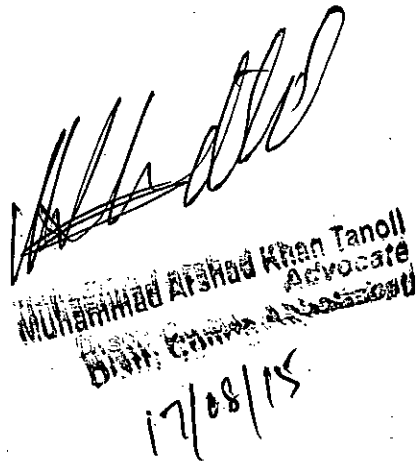 Muhammad Arshad Khan Tanoli
Advocate
Distt. Courts Abbottabad
17/08/15